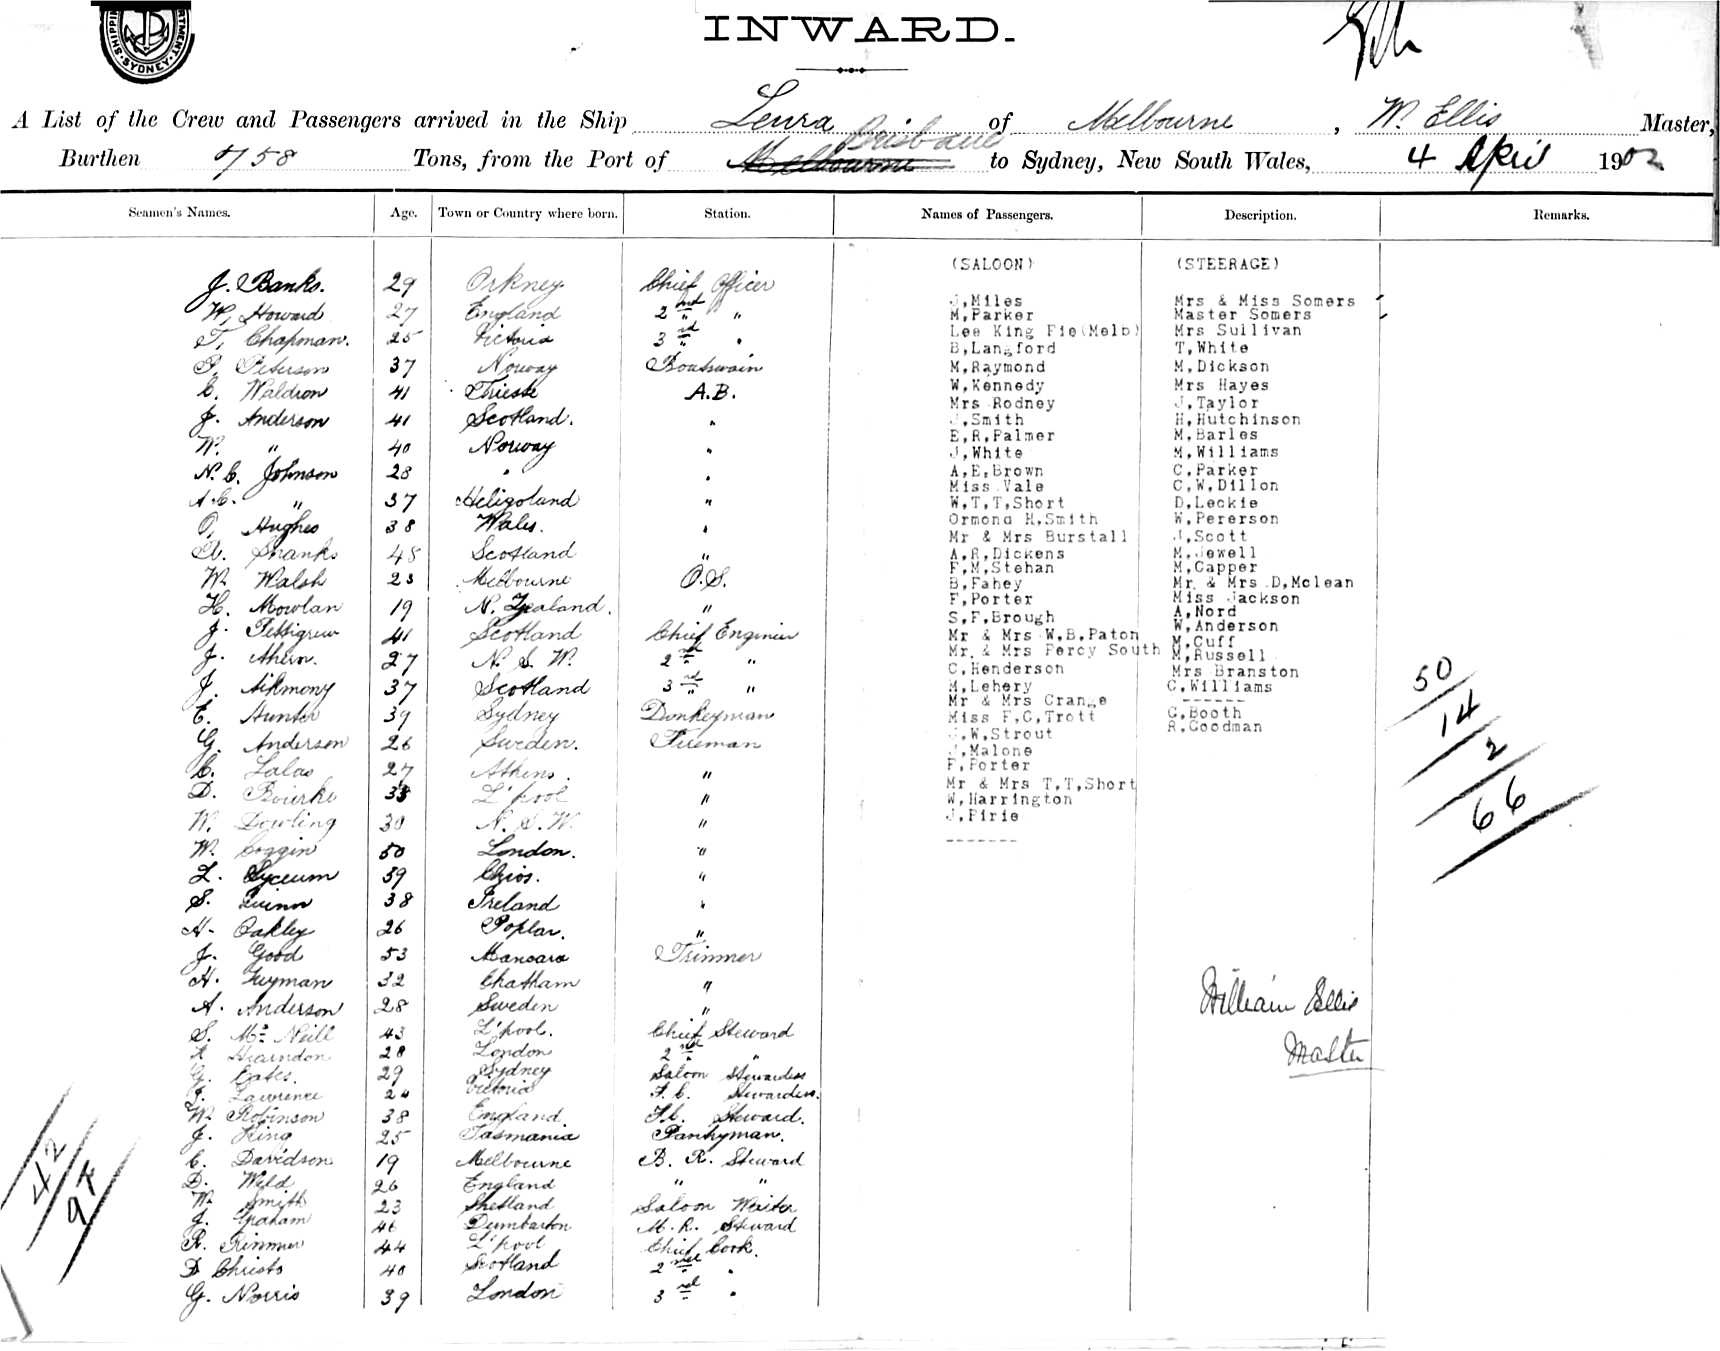 SHIPPING DEPARTMENT. SYDNEY.
INWARD.
A List of the Crew and Passengers arrived in the Ship Leura of Melbourne, W. Ellis Master,
Brisbane
Burthen 0/758 Tons, from the Port of Melbourne to Sydney, New South Wales, 4 April 1902
Seamen's Names. Age. Town or Country where born. Station. Names of Passengers. Description. Remarks.
J. Banks. 29 Orkney Chief Officer
W. Howard 27 England 2nd "
T. Chapman. 25 Victoria 3rd "
P. Peterson 37 Norway Boatswain
C. Waldron 41 Trieste A.B.
J. Anderson 41 Scotland. "
W. " 40 Norway "
N. C. Johnson 28 " "
A C. " 37 Heligoland "
O. Hughes 38 Wales. "
A. Shanks 48 Scotland "
W. Walsh 23 Melbourne O.S.
H. Mowlan 19 N. Zealand. "
J. Pettigrew 41 Scotland Chief Engineer
J. Ahern. 27 N. S. W. 2nd "
J. Aikmony 37 Scotland 3rd "
E. Hunter 39 Sydney Donkeyman
G. Anderson 26 Sweden. Fireman
C. Lalas 27 Athens. "
D. Bourke 38 L'pool "
W. Dowling 30 N. S. W. "
W. Coggin 50 London. "
L. Lyceum 39 Chios. "
S. Quinn 38 Ireland "
H. Oakley 26 Poplar. "
J. Good 53 Trimmer
H. Guyman 32 Chatham "
A. Anderson 28 Sweden "
S. McNeill 43 L'pool. Chief Steward
Hearndon 28 London 2nd "
G. Bates. 29 Sydney Saloon Stewardess
Lawrence 24 Victoria F. C. Stewardess.
W. Robinson 38 England F.C. Steward.
J. King 25 Tasmania Pantryman.
C. Davidson 19 Melbourne B. R. Steward
D. Weld 26 England " "
W. Smith 23 Shetland Saloon Waiter
J. Graham 46 Dumbarton M. R. Steward
R. Rimmer 44 L'pool Chief Cook.
D Christo 40 Scotland 2nd "
G. Norris 39 London 3rd "
42
97
(SALOON)
J,Miles
M,Parker
Lee King Fie(Melb)
B,Langford
M,Raymond
W,Kennedy
Mrs Rodney
J,Smith
E,R,Palmer
J,White
A,E,Brown
Miss Vale
W,T,T,Short
Ormond H,Smith
Mr & Mrs Burstall
A,R,Dickens
F,M,Stehan
B,Fahey
F,Porter
S,F,Brough
Mr & Mrs W,B,Paton
Mr & Mrs Percy South
C,Henderson
M,Lehery
Mr & Mrs Crange
Miss F,C,Trott
J,W,Strout
J,Malone
F,Porter
Mr & Mrs T,T,Short
W,Harrington
J,Pirie
-------
(STEERAGE)
Mrs & Miss Somers
Master Somers
Mrs Sullivan
T,White
M,Dickson
Mrs Hayes
J,Taylor
H,Hutchinson
M,Barles
M,Williams
C,Parker
C,W,Dillon
D,Leckie
W,Pererson
J,Scott
M,Jewell
M,Capper
Mr & Mrs D,Mclean
Miss Jackson
A,Nord
W,Anderson
M,Cuff
M,Russell
Mrs Branston
C,Williams
------
C,Booth
R,Goodman
50
14
2
66
William Ellis
Master